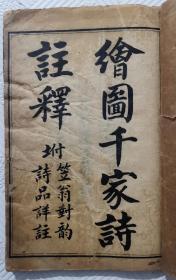 繪圖千家詩
註釋
坿笠翁對韵
詩品詳註